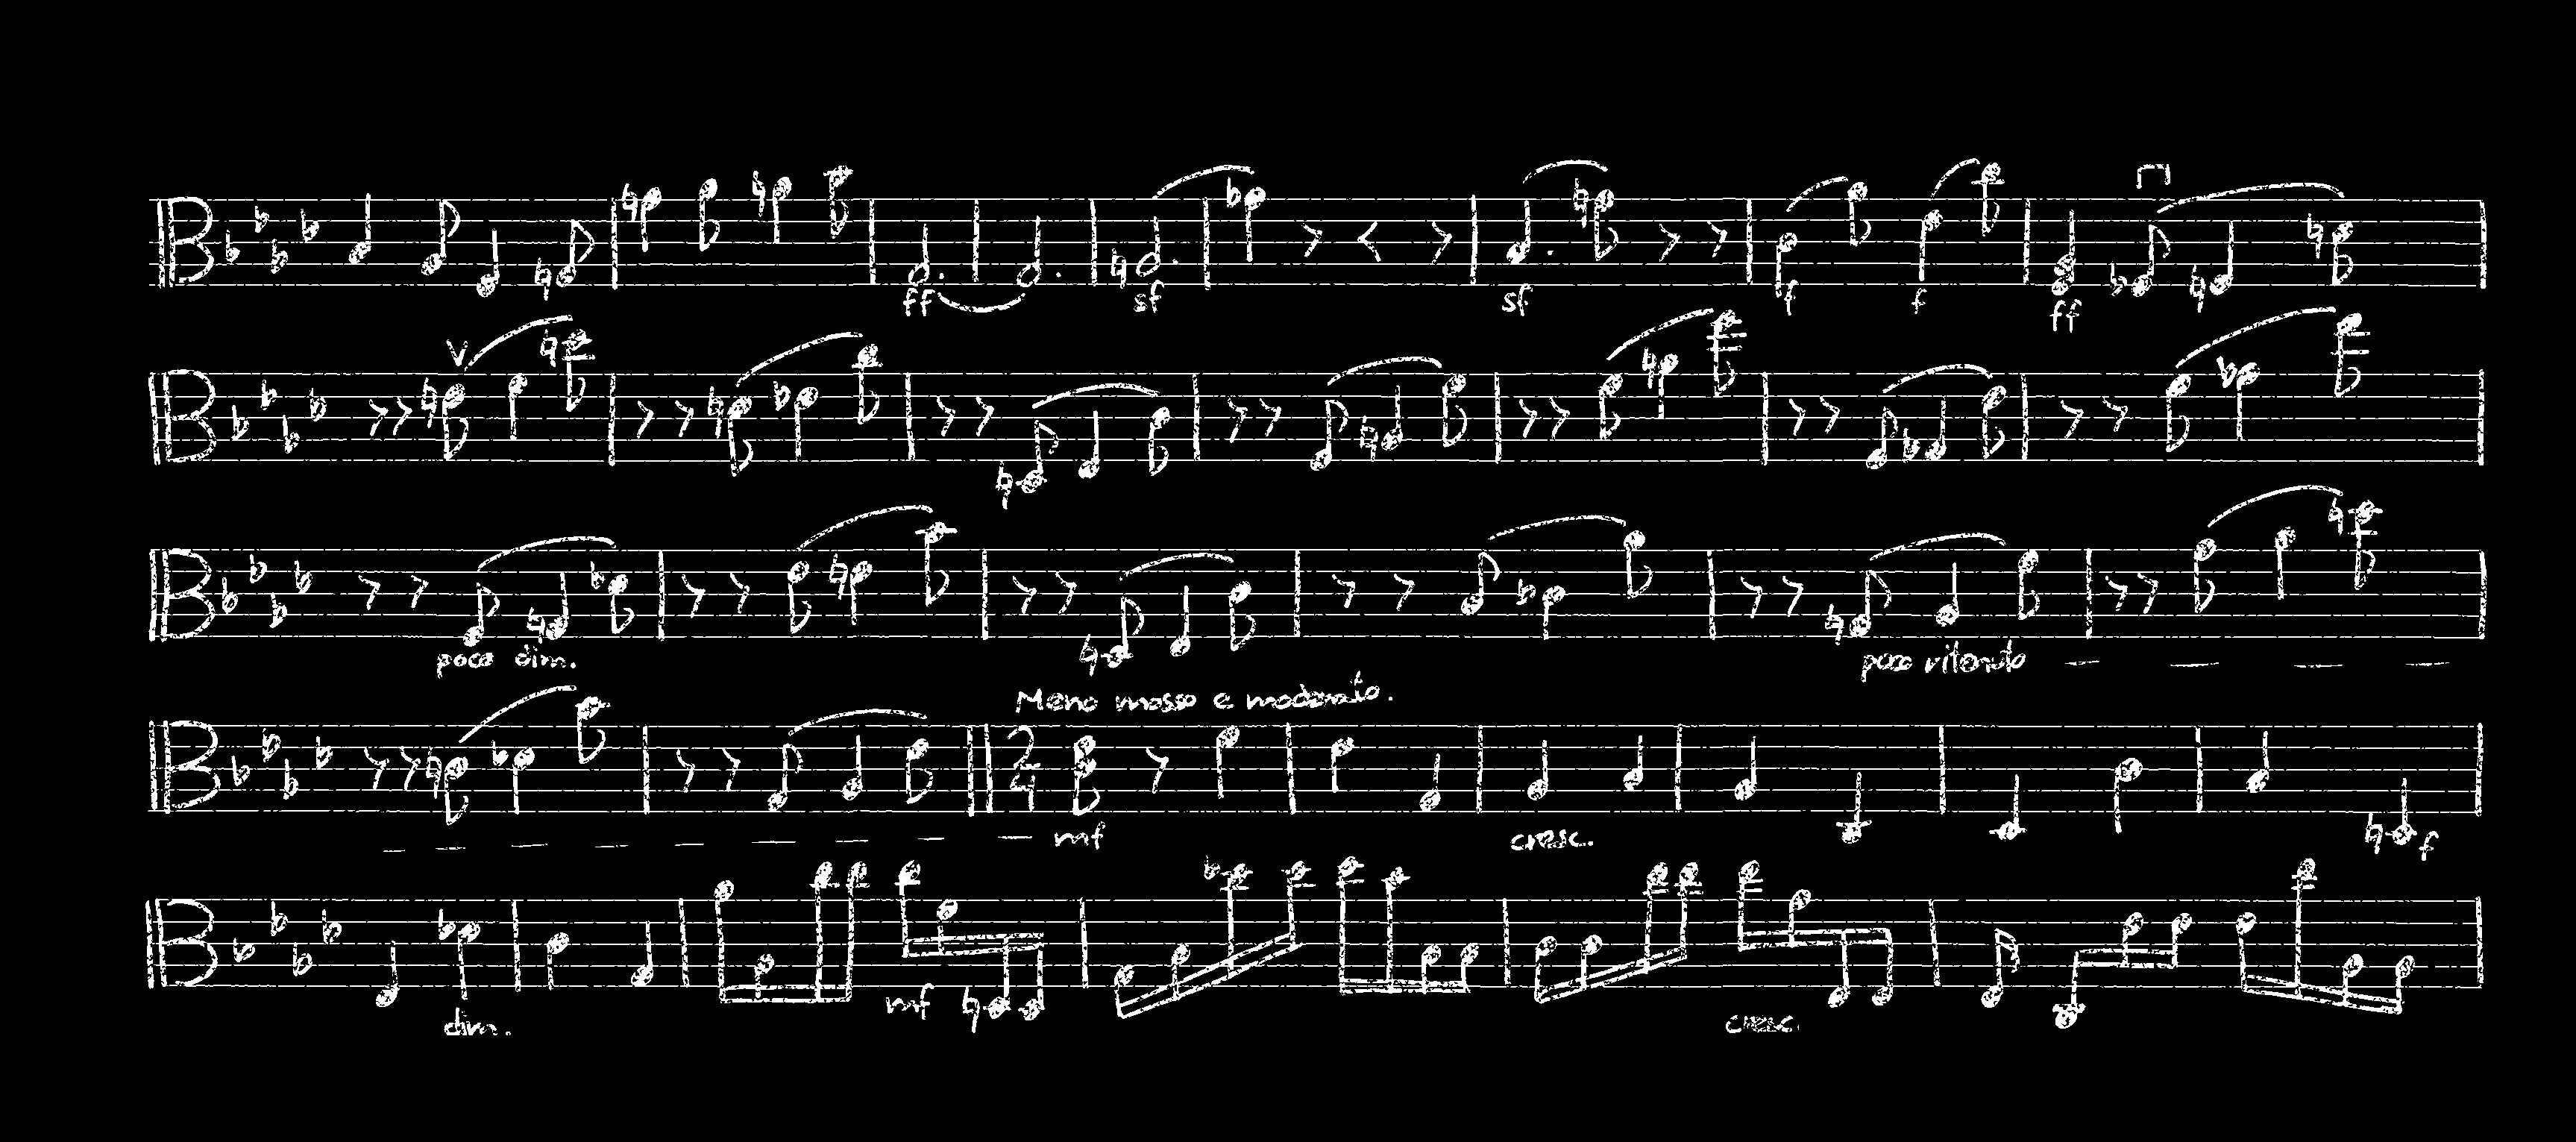 ff sf sf f f ff
poco dim. poco ritenuto
Meno mosso e moderato.
2 4
mf cresc. f
mf
dim. cresc.